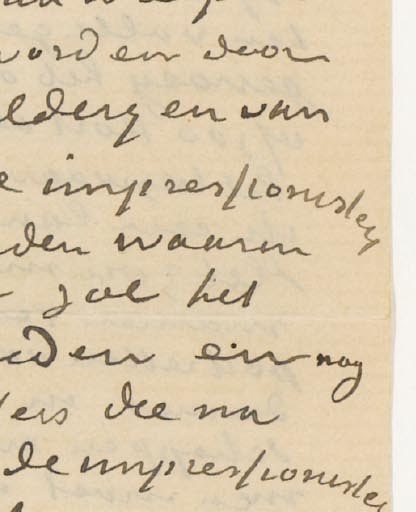 worden door
schilders en van
de impressionisten
den waarin
zal het
eeden een nog
ders die na
de impressionisten